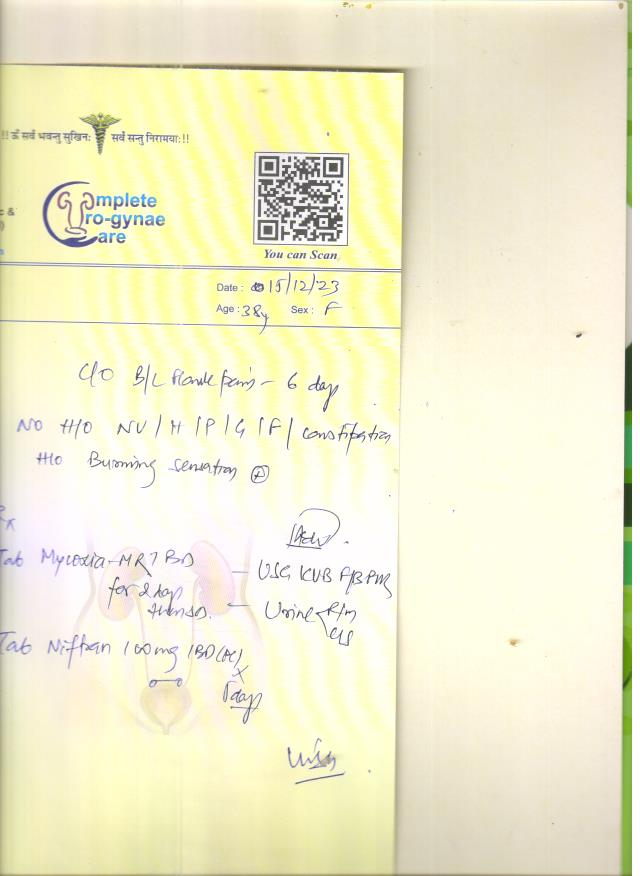 !! ॐ सर्वे भवन्तु सुखिनः सर्वे सन्तु निरामयाः !!
c &
Complete
Uro-gynae
Care
You can Scan
Date : 15/12/23
Age : 38y Sex : F
C/O B/L Flank pain - 6 days
NO H/O NV / H / P / G / F / constipation
H/o Burning sensation ⊕
Rx
Adv.
Tab Mycoxia-MR 7 BD
for 2 days
then SD.
- USG KUB
- Urine R/m
C/S
Tab Niftran 100mg 1BD
x
days